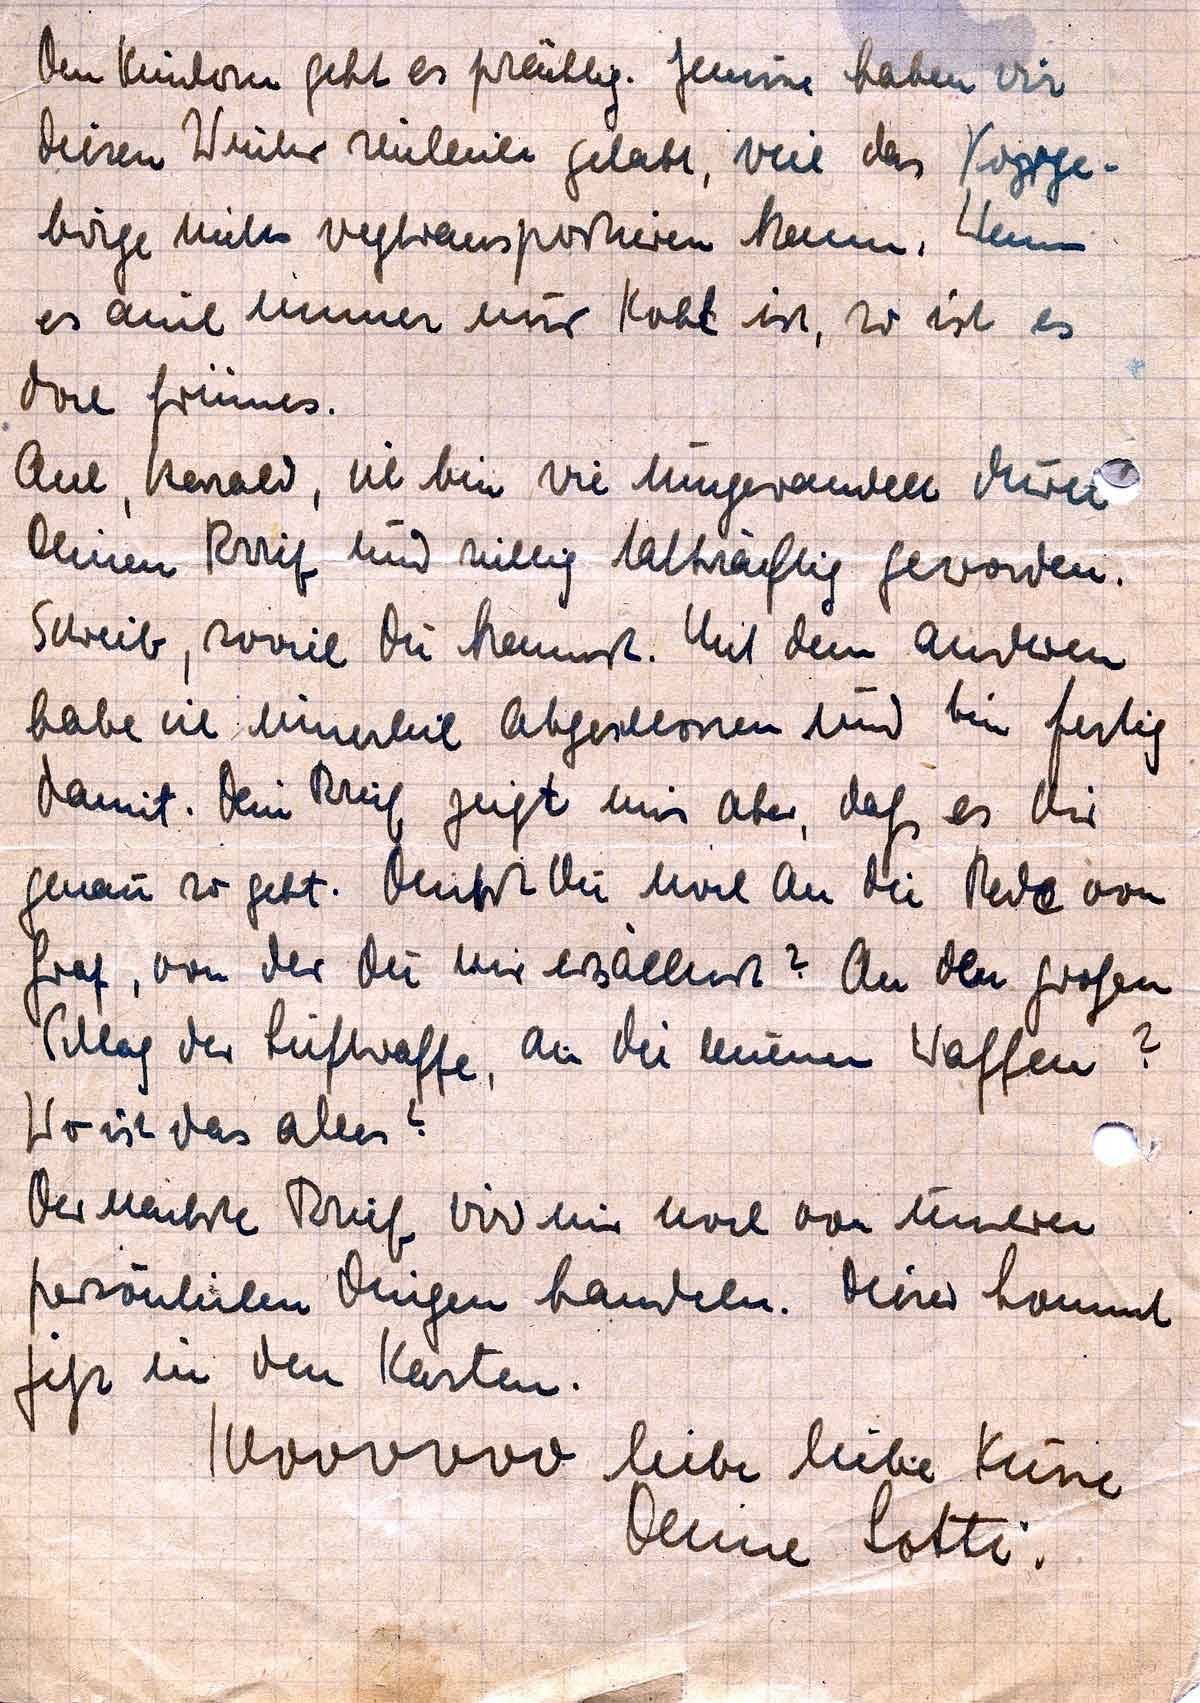 Den Kindern geht es prächtig. Gemüse haben wir
diesen Winter reichlich gehabt, weil das Vorge-
birge nichts wegtransportieren kann. Wenn
es auch immer nur Kohl ist, so ist es
doch Grünes.
Ach, Harald, ich bin wie umgewandelt durch
Deinen Brief und richtig tatkräftig geworden.
Schreib, soviel Du kannst. Mit dem anderen
habe ich innerlich abgeschlossen und bin fertig
damit. Dein Brief zeigt mir aber, daß es Dir
genau so geht. Denkst Du noch an die Rede von
Graf, von der Du mir erzähltest? An den großen
Schlag der Luftwaffe, an die neuen Waffen?
Wo ist das alles?
Der nächste Brief wird nur noch von unseren
persönlichen Dingen handeln. Dieser kommt
jetzt in den Kasten.
liebe liebe Küsse
Deine Lotti.